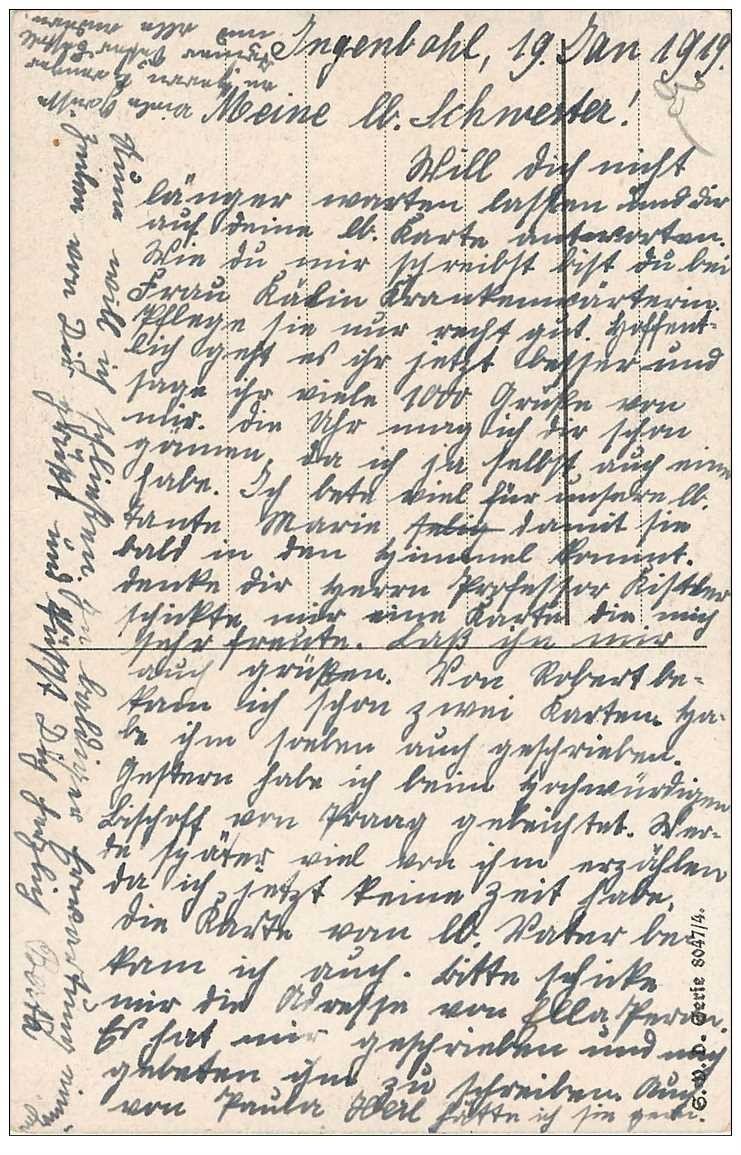 Ingenbohl, 19. Jan 1919.
Meine lb. Schwester!
Will dich nicht
länger warten lassen und dir
auf deine lb. Karte antworten.
Wie du mir schreibst bist du bei
Frau Kälin Krankenwärterin.
Pflege sie nur recht gut. Hoffent-
lich geht es ihr jetzt besser und
sage ihr viele 1000 Grüße von
mir. Die Uhr mag ich dir schon
gönnen, da ich ja selbst auch eine
habe. Ich bete viel für unsere lb.
Tante Marie selig damit sie
bald in den Himmel kommt.
denke dir Herrn Professor Kistler
schickte mir eine Karte die mich
sehr freute. Laß ihn mir
auch grüßen. Von Robert be-
kam ich schon zwei Karten. Ha-
be ihm soeben auch geschrieben.
Gestern habe ich beim Hochwürdigen
Bischoff von Praag gebeichtet. Wer-
de später viel von ihm erzählen
da ich jetzt keine Zeit habe.
Die Karte vom lb. Vater be-
kam ich auch. Bitte schicke
mir die Adresse von Ella
Es hat mir geschrieben und mich
gebeten ihm zu schreiben. Auch
von Paula hätte ich sie gern.
Nun will ich schließen. In
von Dir grüßt und küßt Dich herzlich
und alle anderen
S. V. D. Serie 8047/4.